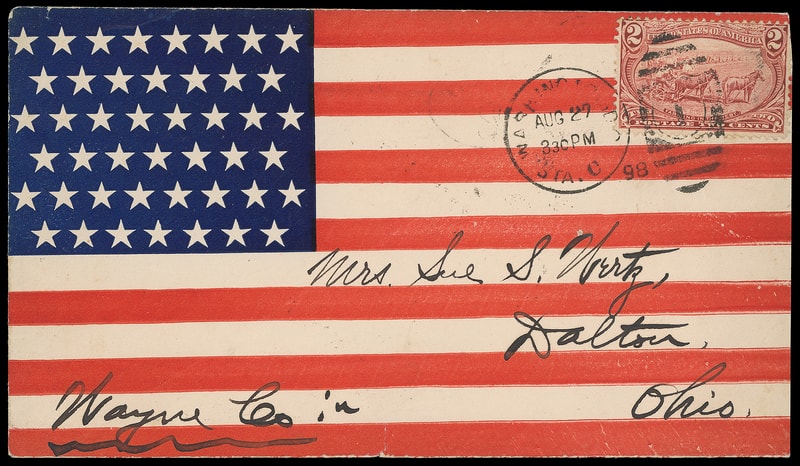 2 UNITED STATES OF AMERICA 2
POSTAGE TWO CENTS
WASHINGTON
AUG 27
330PM
STA. C
98
Mrs. Sue S. Wertz,
Dalton,
Wayne Co in
Ohio.